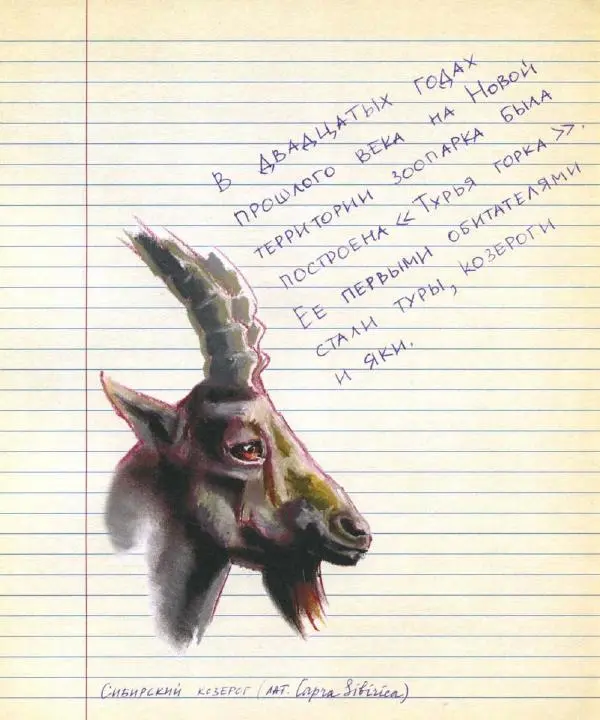 В двадцатых годах
прошлого века на Новой
территории зоопарка была
построена «Турья горка».
Ее первыми обитателями
стали туры, козероги
и яки.
Сибирский козерог (лат. Capra Sibirica)